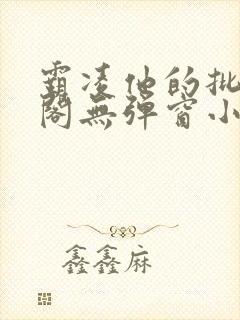 霸凌他的批
阁無弹窗小
鑫鑫麻